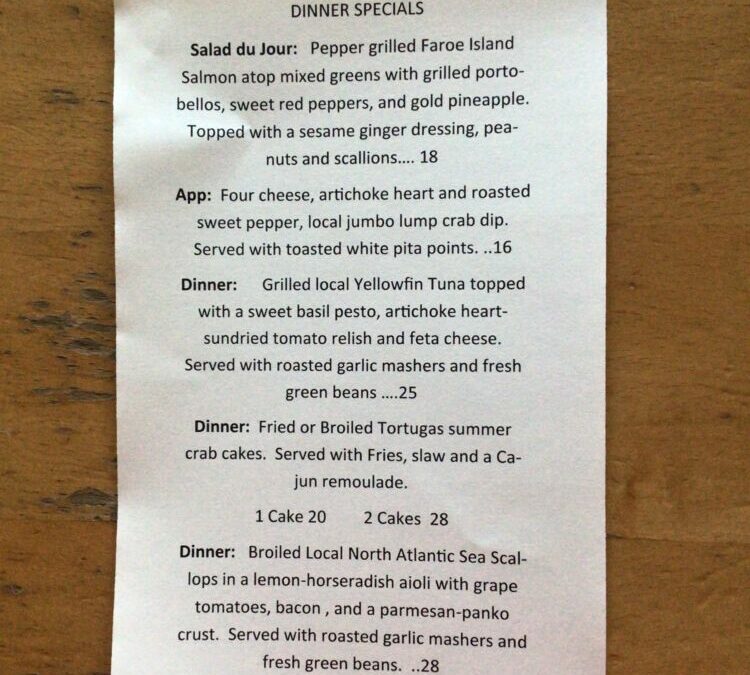 DINNER SPECIALS
Salad du Jour: Pepper grilled Faroe Island
Salmon atop mixed greens with grilled porto-
bellos, sweet red peppers, and gold pineapple.
Topped with a sesame ginger dressing, pea-
nuts and scallions.... 18
App: Four cheese, artichoke heart and roasted
sweet pepper, local jumbo lump crab dip.
Served with toasted white pita points. ..16
Dinner: Grilled local Yellowfin Tuna topped
with a sweet basil pesto, artichoke heart-
sundried tomato relish and feta cheese.
Served with roasted garlic mashers and fresh
green beans ....25
Dinner: Fried or Broiled Tortugas summer
crab cakes. Served with Fries, slaw and a Ca-
jun remoulade.
1 Cake 20 2 Cakes 28
Dinner: Broiled Local North Atlantic Sea Scal-
lops in a lemon-horseradish aioli with grape
tomatoes, bacon , and a parmesan-panko
crust. Served with roasted garlic mashers and
fresh green beans. ..28